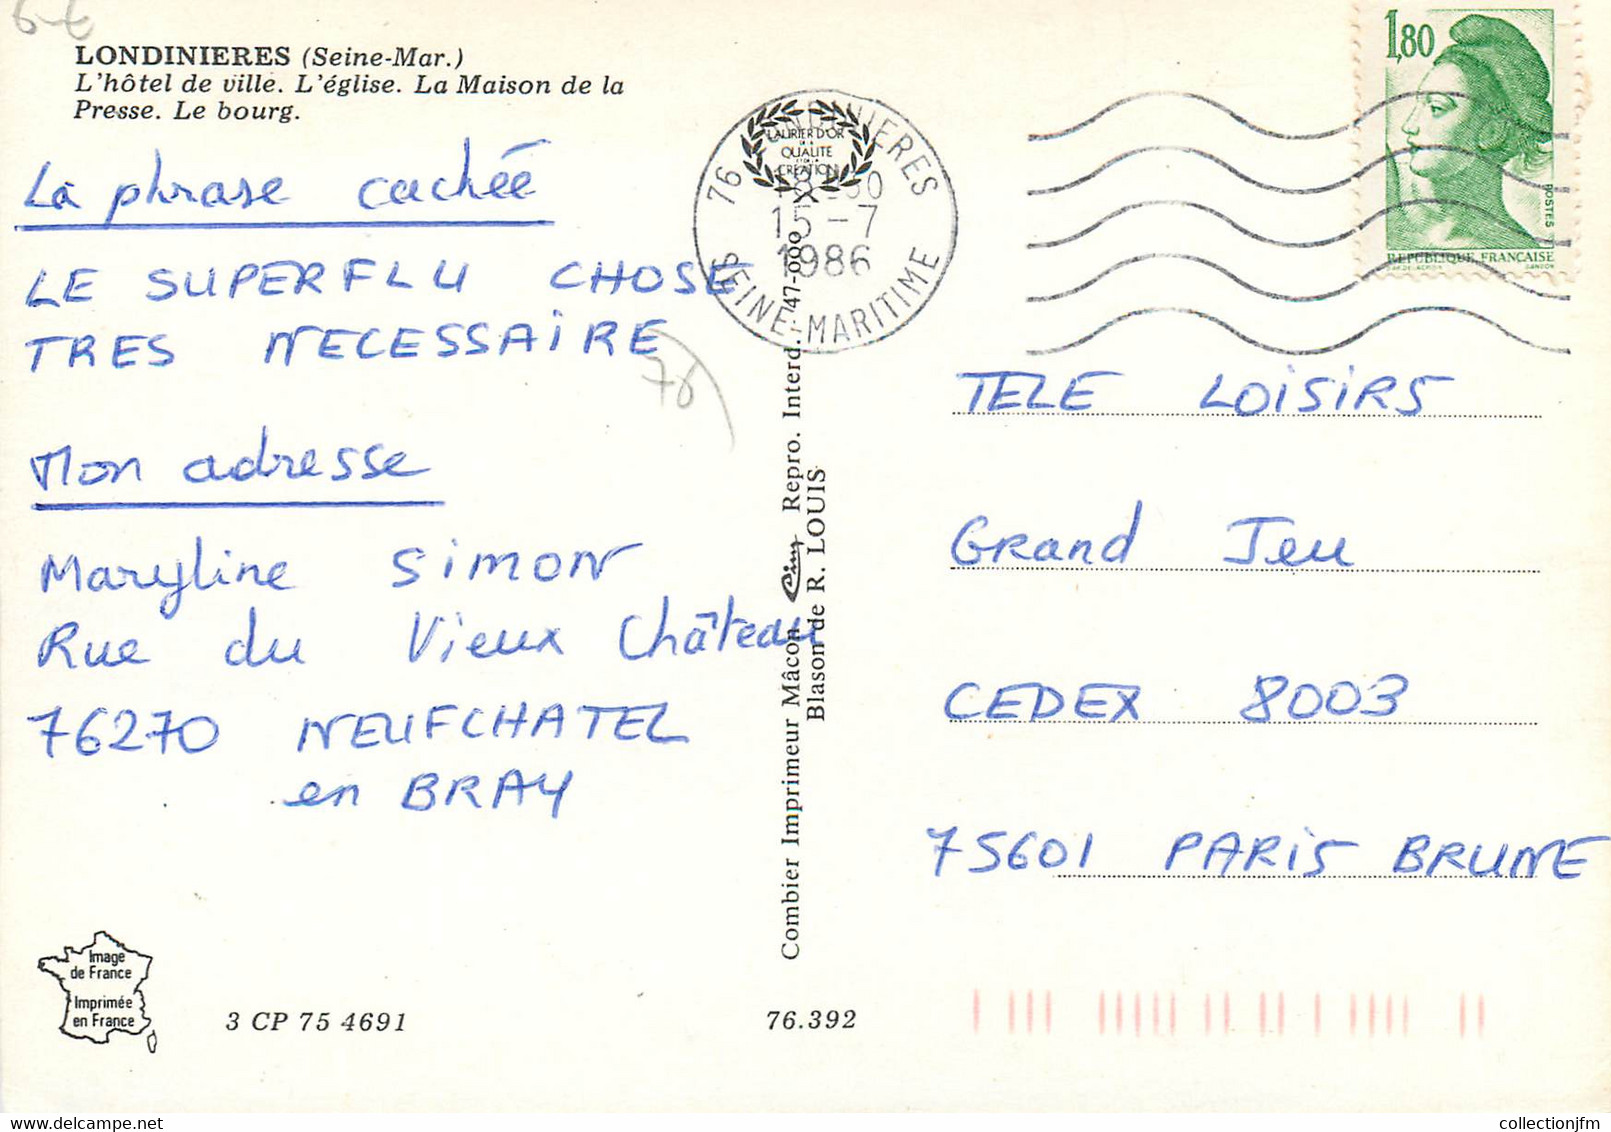 6€
LONDINIERES (Seine-Mar.)
L'hôtel de ville. L'église. La Maison de la
Presse. Le bourg.
La phrase cachée
LE SUPERFLU CHOSE
TRES NECESSAIRE
76
Mon adresse
Maryline SIMON
Rue du Vieux Château
76270 NEUFCHATEL
en BRAY
Image
de France
Imprimée
en France
3 CP 75 4691
76.392
Combier Imprimeur Mâcon Cim Repro. Interd.
Blason de R. LOUIS
LAURIER D'OR
DE LA
QUALITE
ET DE LA
CREATION
76 LONDINIERES
15-7
1986
SEINE-MARITIME
1,80
POSTES
REPUBLIQUE FRANÇAISE
GANDON
TELE LOISIRS
Grand Jeu
CEDEX 8003
75601 PARIS BRUNE
collectionjfm